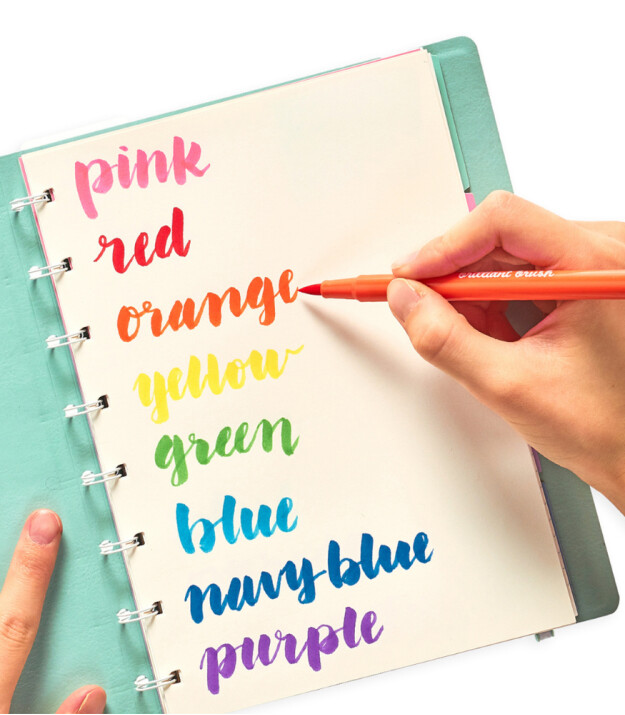 pink
red
orange
brilliant brush
yellow
green
blue
navy-blue
purple